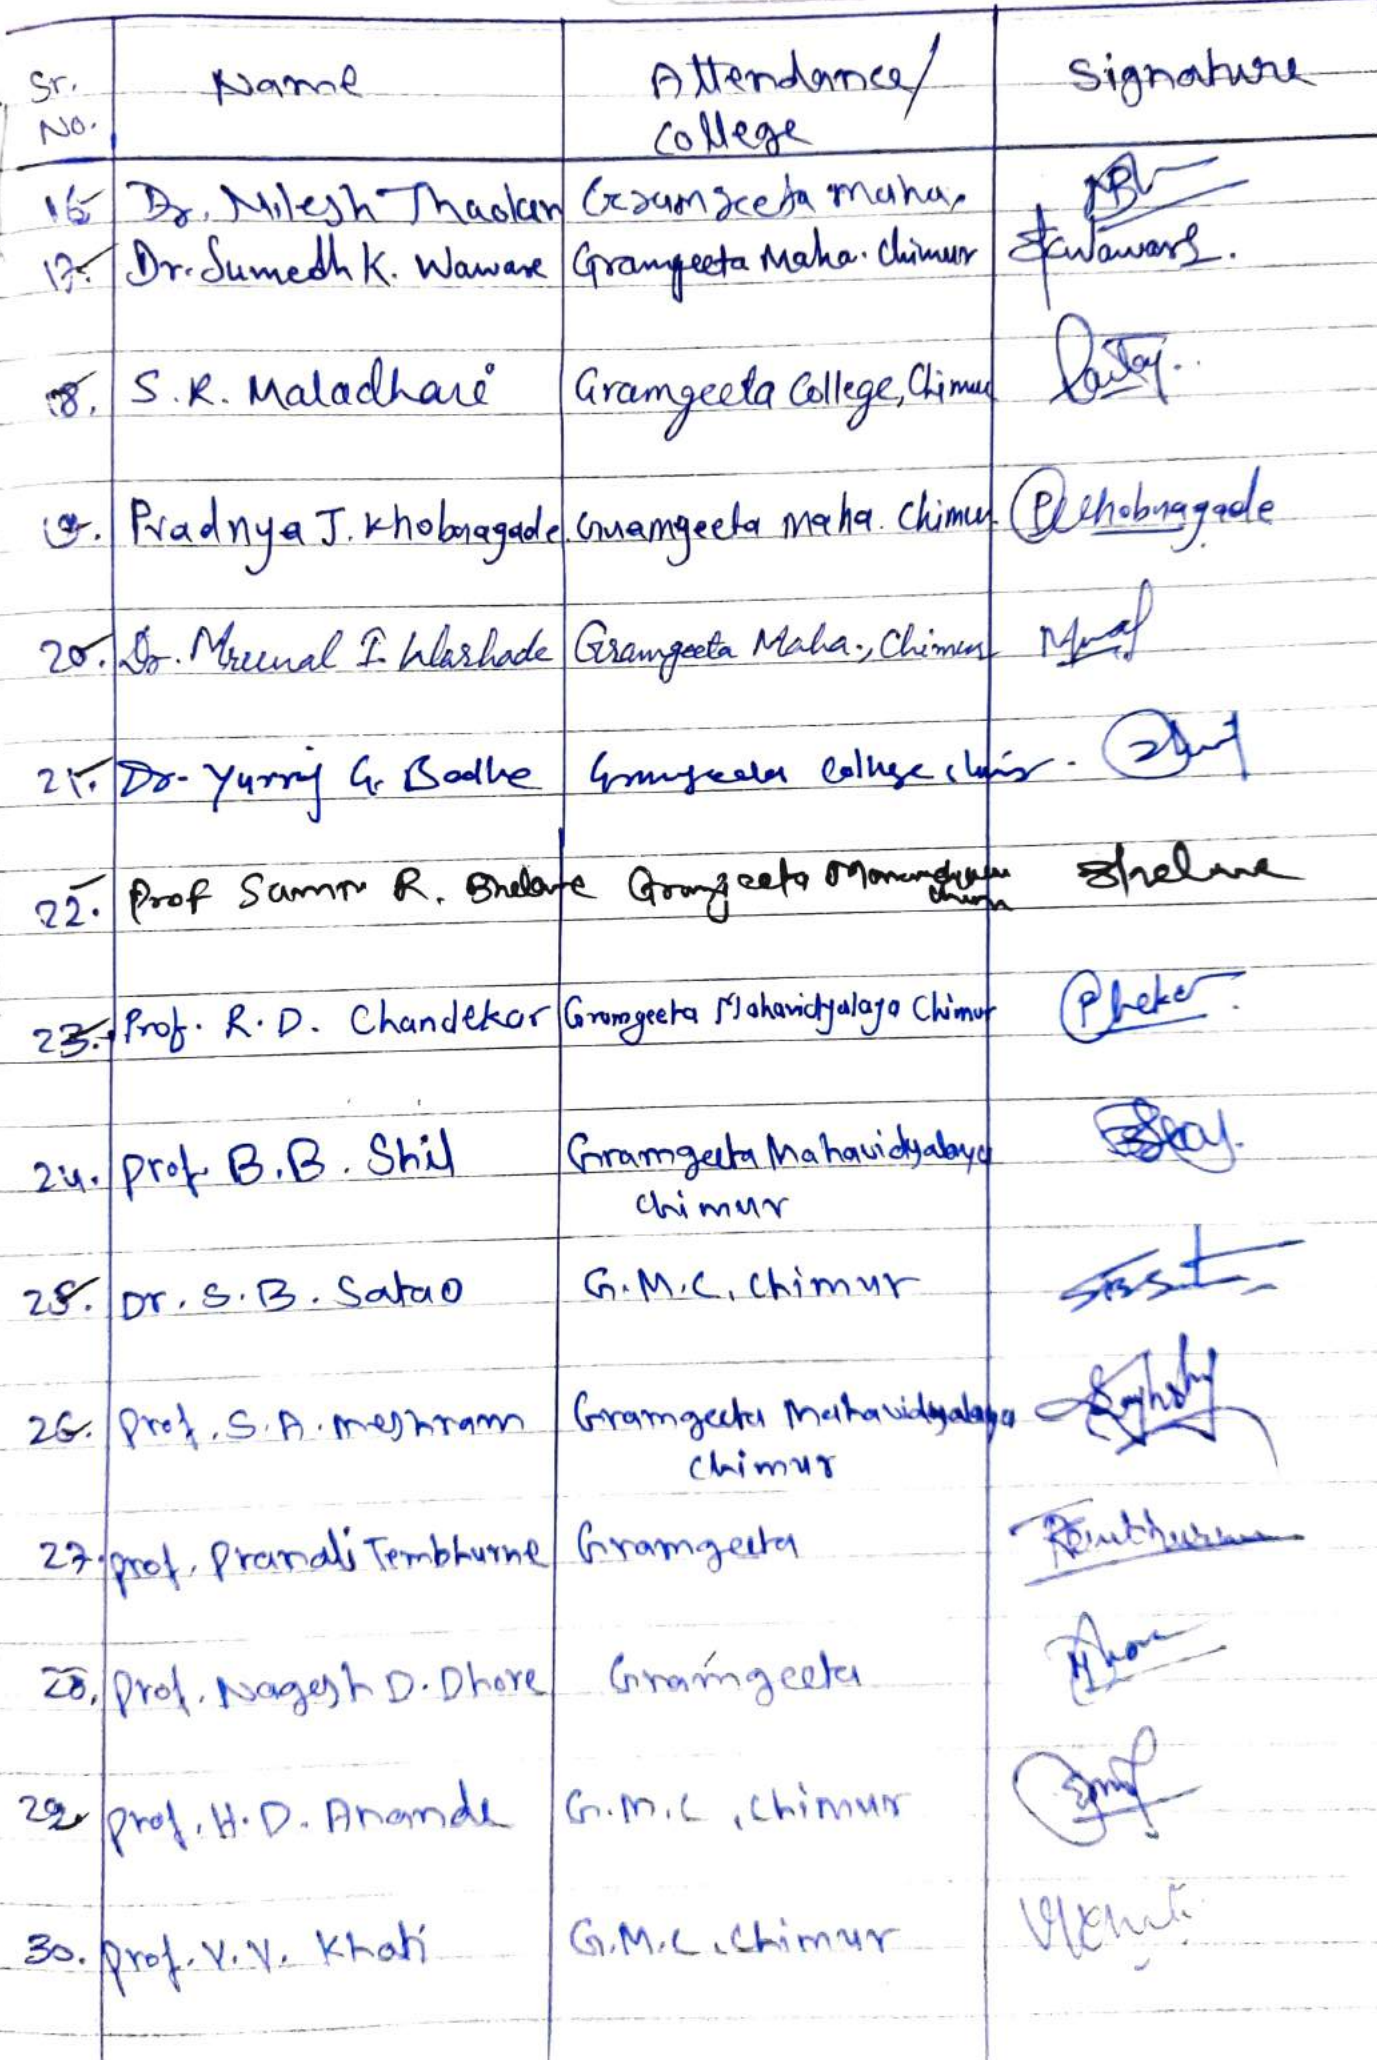 Sr. No. Name Attendance/ College Signature
16 Dr. Nilesh Thaokar Gramgeeta maha.
17. Dr. Sumedh K. Waware Gramgeeta Maha. Chimur SKWaware.
18. S. R. Maladhari Gramgeeta College, Chimur
19. Pradnya J. Khobragade. Gramgeeta maha. Chimur PKhobragade
20. Dr. Mrunal I. Warhade Gramgeeta Maha., Chimur
21. Dr. G. Bodhe Gramgeeta College
22. Prof R. Gramgeeta
23. Prof. R.D. Chandekar Gramgeeta Mahavidyalaya Chimur
24. Prof. B.B. Shil Gramgeeta Mahavidyalaya
Chimur
25. Dr. S.B. Satao G.M.C. Chimur
26. Prof. S.A. Meshram Gramgeeta Mahavidyalaya
Chimur
27. Prof. Pranali Tembhurne Gramgeeta
28. Prof. Nagesh D. Dhore Gramgeeta
29. Prof. H.D. Anande G.M.C, Chimur
30. Prof. V.V. Khati G.M.C. Chimur